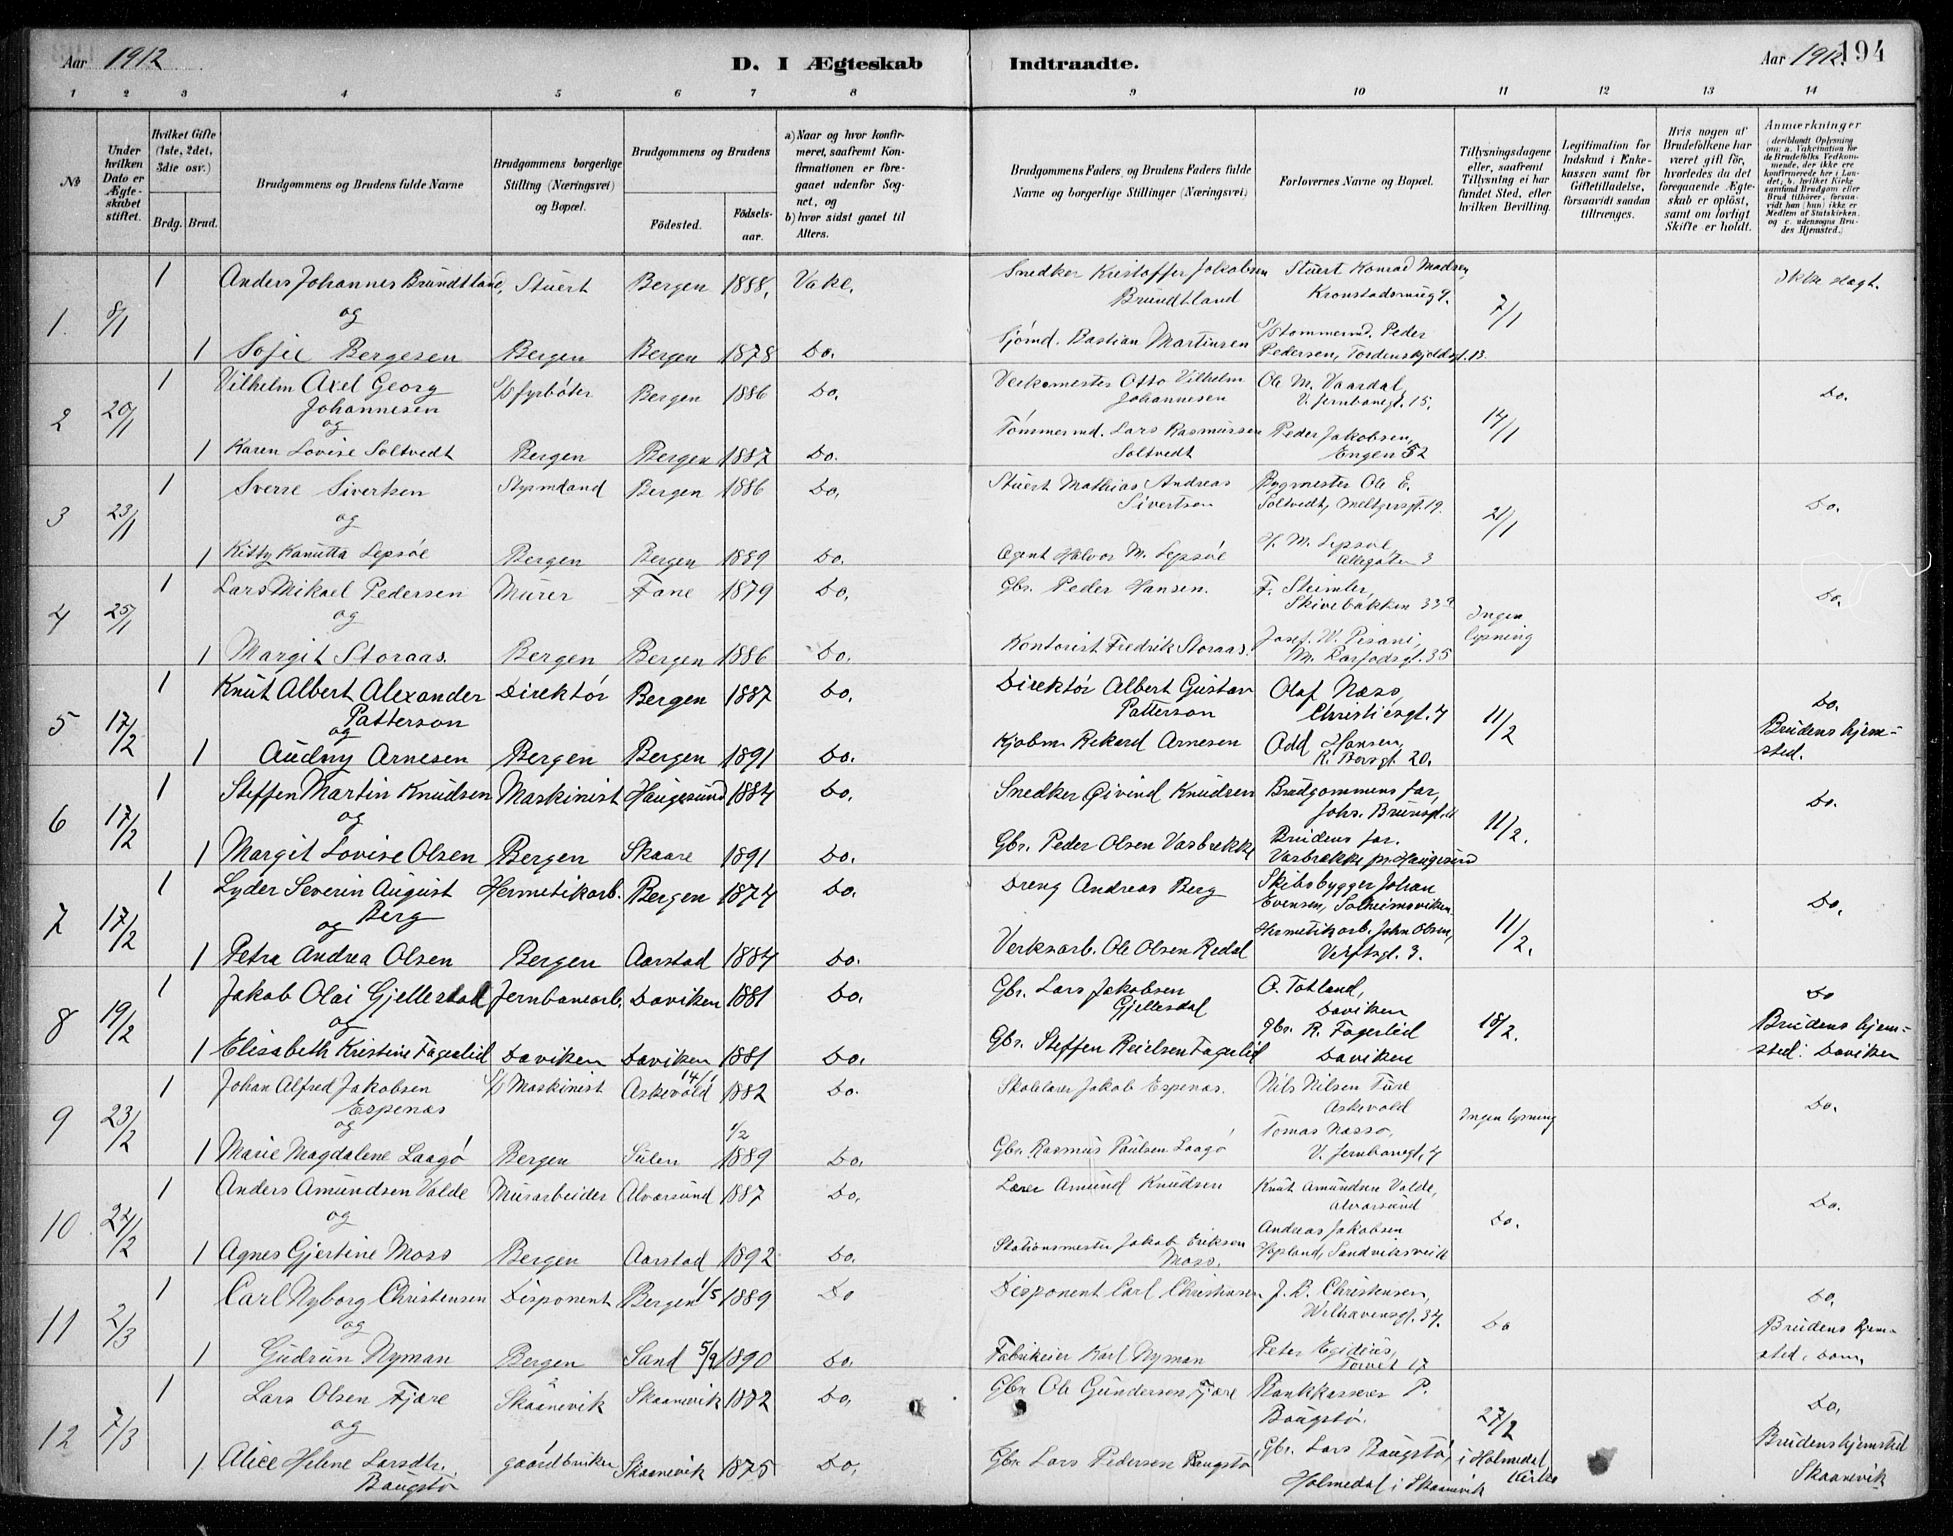 Aar 1912
D. I Ægteskab
Indtraadte.
Aar 1912.
194
1 2 3 4 5 6 7 8 9 10 11 12 13 14
No
Under hvilken Dato er Ægteskabet stiftet.
Hvilket Gifte (1ste, 2det, 3die osv.)
Brdg. Brud.
Brudgommens og Brudens fulde Navne
Brudgommens borgerlige Stilling (Næringsvei) og Bopæl.
Brudgommens og Brudens
Födested.
Födselsaar.
a) Naar og hvor konfirmeret, saafremt Konfirmationen er foregaaet udenfor Sognet, og
b) hvor sidst gaaet til Alters.
Brudgommens Faders, og Brudens Faders fulde Navne og borgerlige Stillinger (Næringsvei)
Forlovernes Navne og Bopæl.
Tillysningsdagene eller, saafremt Tillysning ei har fundet Sted, efter hvilken Bevilling.
Legitimation for Indskud i Enkekassen samt for Giftetilladelse, forsaavidt saadan tiltrænges.
Hvis nogen af Brudefolkene har været gift för, hvorledes da det foregaaende Ægteskab er oplöst, samt om lovligt Skifte er holdt.
Anmærkninger (deriblandt Oplysning om: a. Vakcination for de Brudefolks Vedkommende, der ikke ere konfirmerede her i Landet; b. hvilket Kirkesamfund Brudgom eller Brud tilhörer, forsaavidt han (hun) ikke er Medlem af Statskirken, og c. udensogns Brudes Hjemsted.)
1. 8/1 1 Anders Johannes Brundtland, Stuert Bergen 1888, Snedker Kristoffer Jakobsen Brundtland Stuert Konrad Madsen Ikke slegt.
og 7/1
1 Sofie Bergesen Bergen Bergen 1878 Do. Sjömd. Bastian Martinsen Tømmermd. Peder Pedersen, Tordenskjoldsgt. 13
2 20/1 1 Vilhelm Axel Georg Johannesen fyrböter Bergen 1886 Do. Otto Vilhelm Johannesen Ole M. Vaardal, V. Jernbanegt. 15. Do.
og 14/1
1 Karen Lovise Soltvedt Bergen Bergen 1887 Do. Tömmermd. Lars Rasmussen Soltvedt Peder Jakobsen, Engen 52
3 23/1 1 Sverre Sivertsen Styrmand Bergen 1886 Do, Stuert Mathias Andreas Sivertsen Bygmester Ole E. Soltvedt, 19. Do.
og 21/1
1 Kitty Kanutta Lepsöe Bergen Bergen 1889 Do. Agent Halvor M. Lepsöe H. M. Lepsöe, Allegaten 3
4 25/1 1 Lars Mikael Pedersen Murer Fane 1879 Do, Gbr. Peder Hansen. F. Steimler, Skivebakken 33 Do.
og Ingen lysning
1 Margit Storaas. Bergen Bergen 1886 Do. Kontorist Fredrik Storaas. Josef W. Pisani, 35
5 17/2 1 Knut Albert Alexander Patterson Direktör Bergen 1887 Do, Direktör Albert Gustav Patterson Olaf Næss, Christiesgt. 4 Do.
og 11/2 Brudens hjemsted.
1 Audny Arnesen Bergen Bergen 1891 Do. Kjöbm. Rikard Arnesen Odd Hansen, 20.
6 17/2 1 Steffen Martin Knudsen Maskinist Haugesund 1884 Do, Snedker Øivind Knudsen Brudgommens far, Johs. Brunsgt. Do.
og 11/2.
1 Margit Lovise Olsen Bergen Skaare 1891 Do. Gbr. Peder Olsen Vasbrekke Brudens far. Vasbrække pr. Haugesund
7 17/2 1 Lyder Severin August Berg Hermetikarb. Bergen 1874 Do, Dreng Andreas Berg Skibsbygger Johan Evensen, Solheimsviken Do,
og 11/2.
1 Petra Andrea Olsen Bergen Aarstad 1884 Do. Verksarb. Ole Olsen Redal Hermetikarb. John Olsen, Verftsgt. 3.
8 19/2 1 Jakob Olai Gjellestad Jernbanearb. Daviken 1881 Do, Gbr. Lars Jakobsen Gjellesdal O. Totland, Daviken Do
og 18/2. Brudens hjemsted: Daviken
1 Elisabeth Kristine Fagerlid Daviken Daviken 1881 Do. Gbr. Steffen Reielsen Fagerlid Gbr. R. Fagerlid Daviken
9 23/2 1 Johan Alfred Jakobsen Espenæs Maskinist Askevold 14/1 1882 Do. Skolelærer Jakob Espenæs. Nils Nilsen Ture Askevold Do.
og Ingen lysning
1 Marie Magdalene Laagö Bergen Sulen 1/2 1889 Do. Gbr. Rasmus Paulsen Laagö Tomas Næss, V. Jernbanegt. 4
10 24/2 1 Anders Amundsen Valde Murarbeider Alversund 1887 Do, Lærer Amund Knudsen Knut Amundsen Valde, Alversund Do.
og Do.
1 Agnes Gjertine Moss Bergen Aarstad 1892 Do. Stationsmester Jakob Eriksen Moss. Andreas Jakobsen Hopland, Sandviksveien
11 2/3 1 Carl Nyborg Christensen Disponent Bergen 1/5 1889 Do Disponent Carl Christensen J. D. Christensen, Welhavensgt. 34. Do,
og Do Brudens hjemsted, Dom,
1 Gudrun Nyman Bergen Sand 5/9 1890 Do. Fabrikeier Karl Nyman Peter Egidius, Torvet 17
12 7/3 1 Lars Olsen Fjære Skaanevik Skaanevik 1872 Do, Gbr. Ole Gundersen Fjære Bankkasserer P. Baugstö. Do,
og 27/2 i Holmedal Kirke Brudens hjemsted Skaanevik
1 Alice Helene Larsdtr. Baugstö gaardbruker Skaanevik 1875 Do, Gbr. Lars Pedersen Baugstö Gbr. Lars Baugstö, Holmedal i Skaanevik